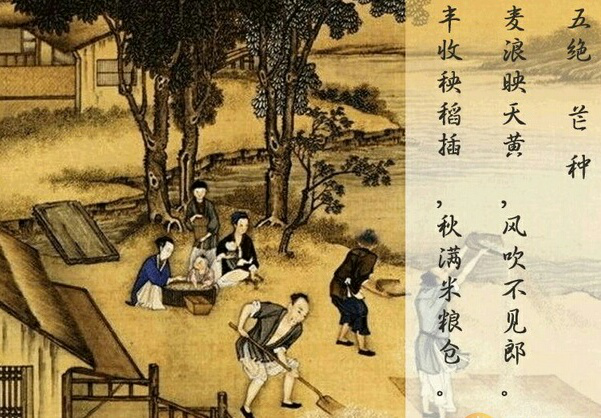 五绝 芒种
麦浪映天黄,风吹不见郎。
丰收秧稻插,秋满米粮仓。